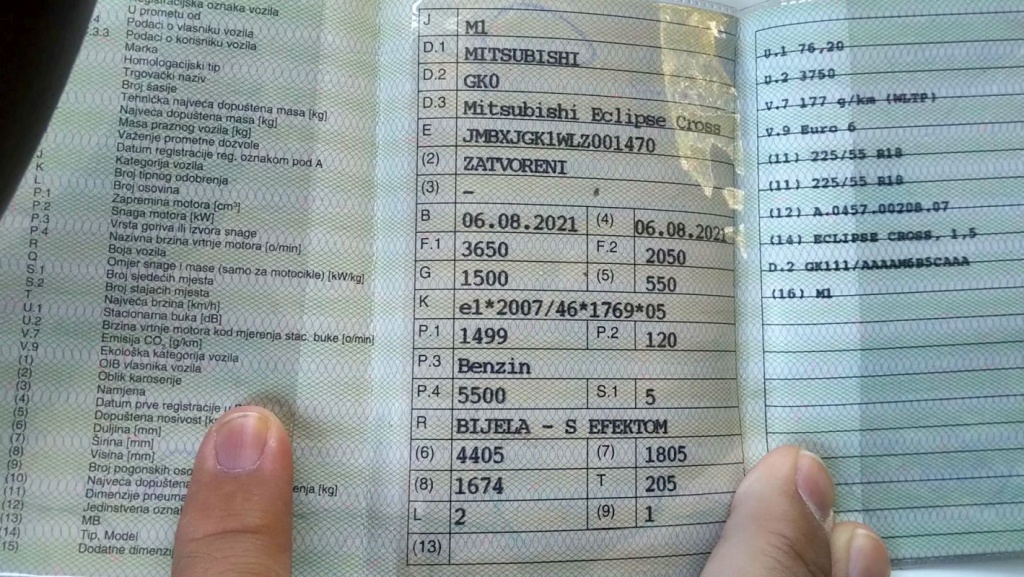 registracijska oznaka vozila
U prometu od
.4 Podaci o vlasniku vozila
.3.3 Podaci o korisniku vozila
Marka
Homologacijski tip
Trgovački naziv
Broj šasije
Tehnička najveća dopuštena masa [kg]
Najveća dopuštena masa [kg]
Masa praznog vozila [kg]
Važenje prometne dozvole
Datum registracije reg. oznakom pod A
J Kategorija vozila
K Broj tipnog odobrenja
L Broj osovina
P.1 Zapremina motora [cm³]
P.2 Snaga motora [kW]
P.3 Vrsta goriva ili izvora snage
P.4 Nazivna brzina vrtnje motora [o/min]
R Boja vozila
Q Omjer snage i mase (samo za motocikle) [kW/kg]
S.1 Broj sjedećih mjesta
S.2 Broj stajaćih mjesta
T Najveća brzina [km/h]
U.1 Stacionarna buka [dB]
U.2 Brzina vrtnje motora kod mjerenja stac. buke [o/min]
V.7 Emisija CO₂ [g/km]
V.9 Ekološka kategorija vozila
(1) OIB vlasnika vozila
(2) Oblik karoserije
(3) Namjena
(4) Datum prve registracije u
(5) Dopuštena nosivost
(6) Duljina [mm]
(7) Širina [mm]
(8) Visina [mm]
(9) Broj pogonskih
(10) Najveća dopuštena [kg]
(11) Dimenzije
(12) Jedinstvena
(13) MB
(14) Tip, Model
15) Dodatne
J M1
D.1 MITSUBISHI
D.2 GK0
D.3 Mitsubishi Eclipse Cross
E JMBXJGK1WLZ001470
(2) ZATVORENI
(3) –
B 06.08.2021 (4) 06.08.2021
F.1 3650 F.2 2050
G 1500 (5) 550
K e1*2007/46*1769*05
P.1 1499 P.2 120
P.3 Benzin
P.4 5500 S.1 5
R BIJELA - S EFEKTOM
(6) 4405 (7) 1805
(8) 1674 T 205
L 2 (9) 1
(13)
U.1 76,20
U.2 3750
V.7 177 g/km (WLTP)
V.9 Euro 6
(11) 225/55 R18
(11) 225/55 R18
(12) A.0457.00208.07
(14) ECLIPSE CROSS, 1,5
D.2 GK111/AAAAM6B5CAAA
(16) M1